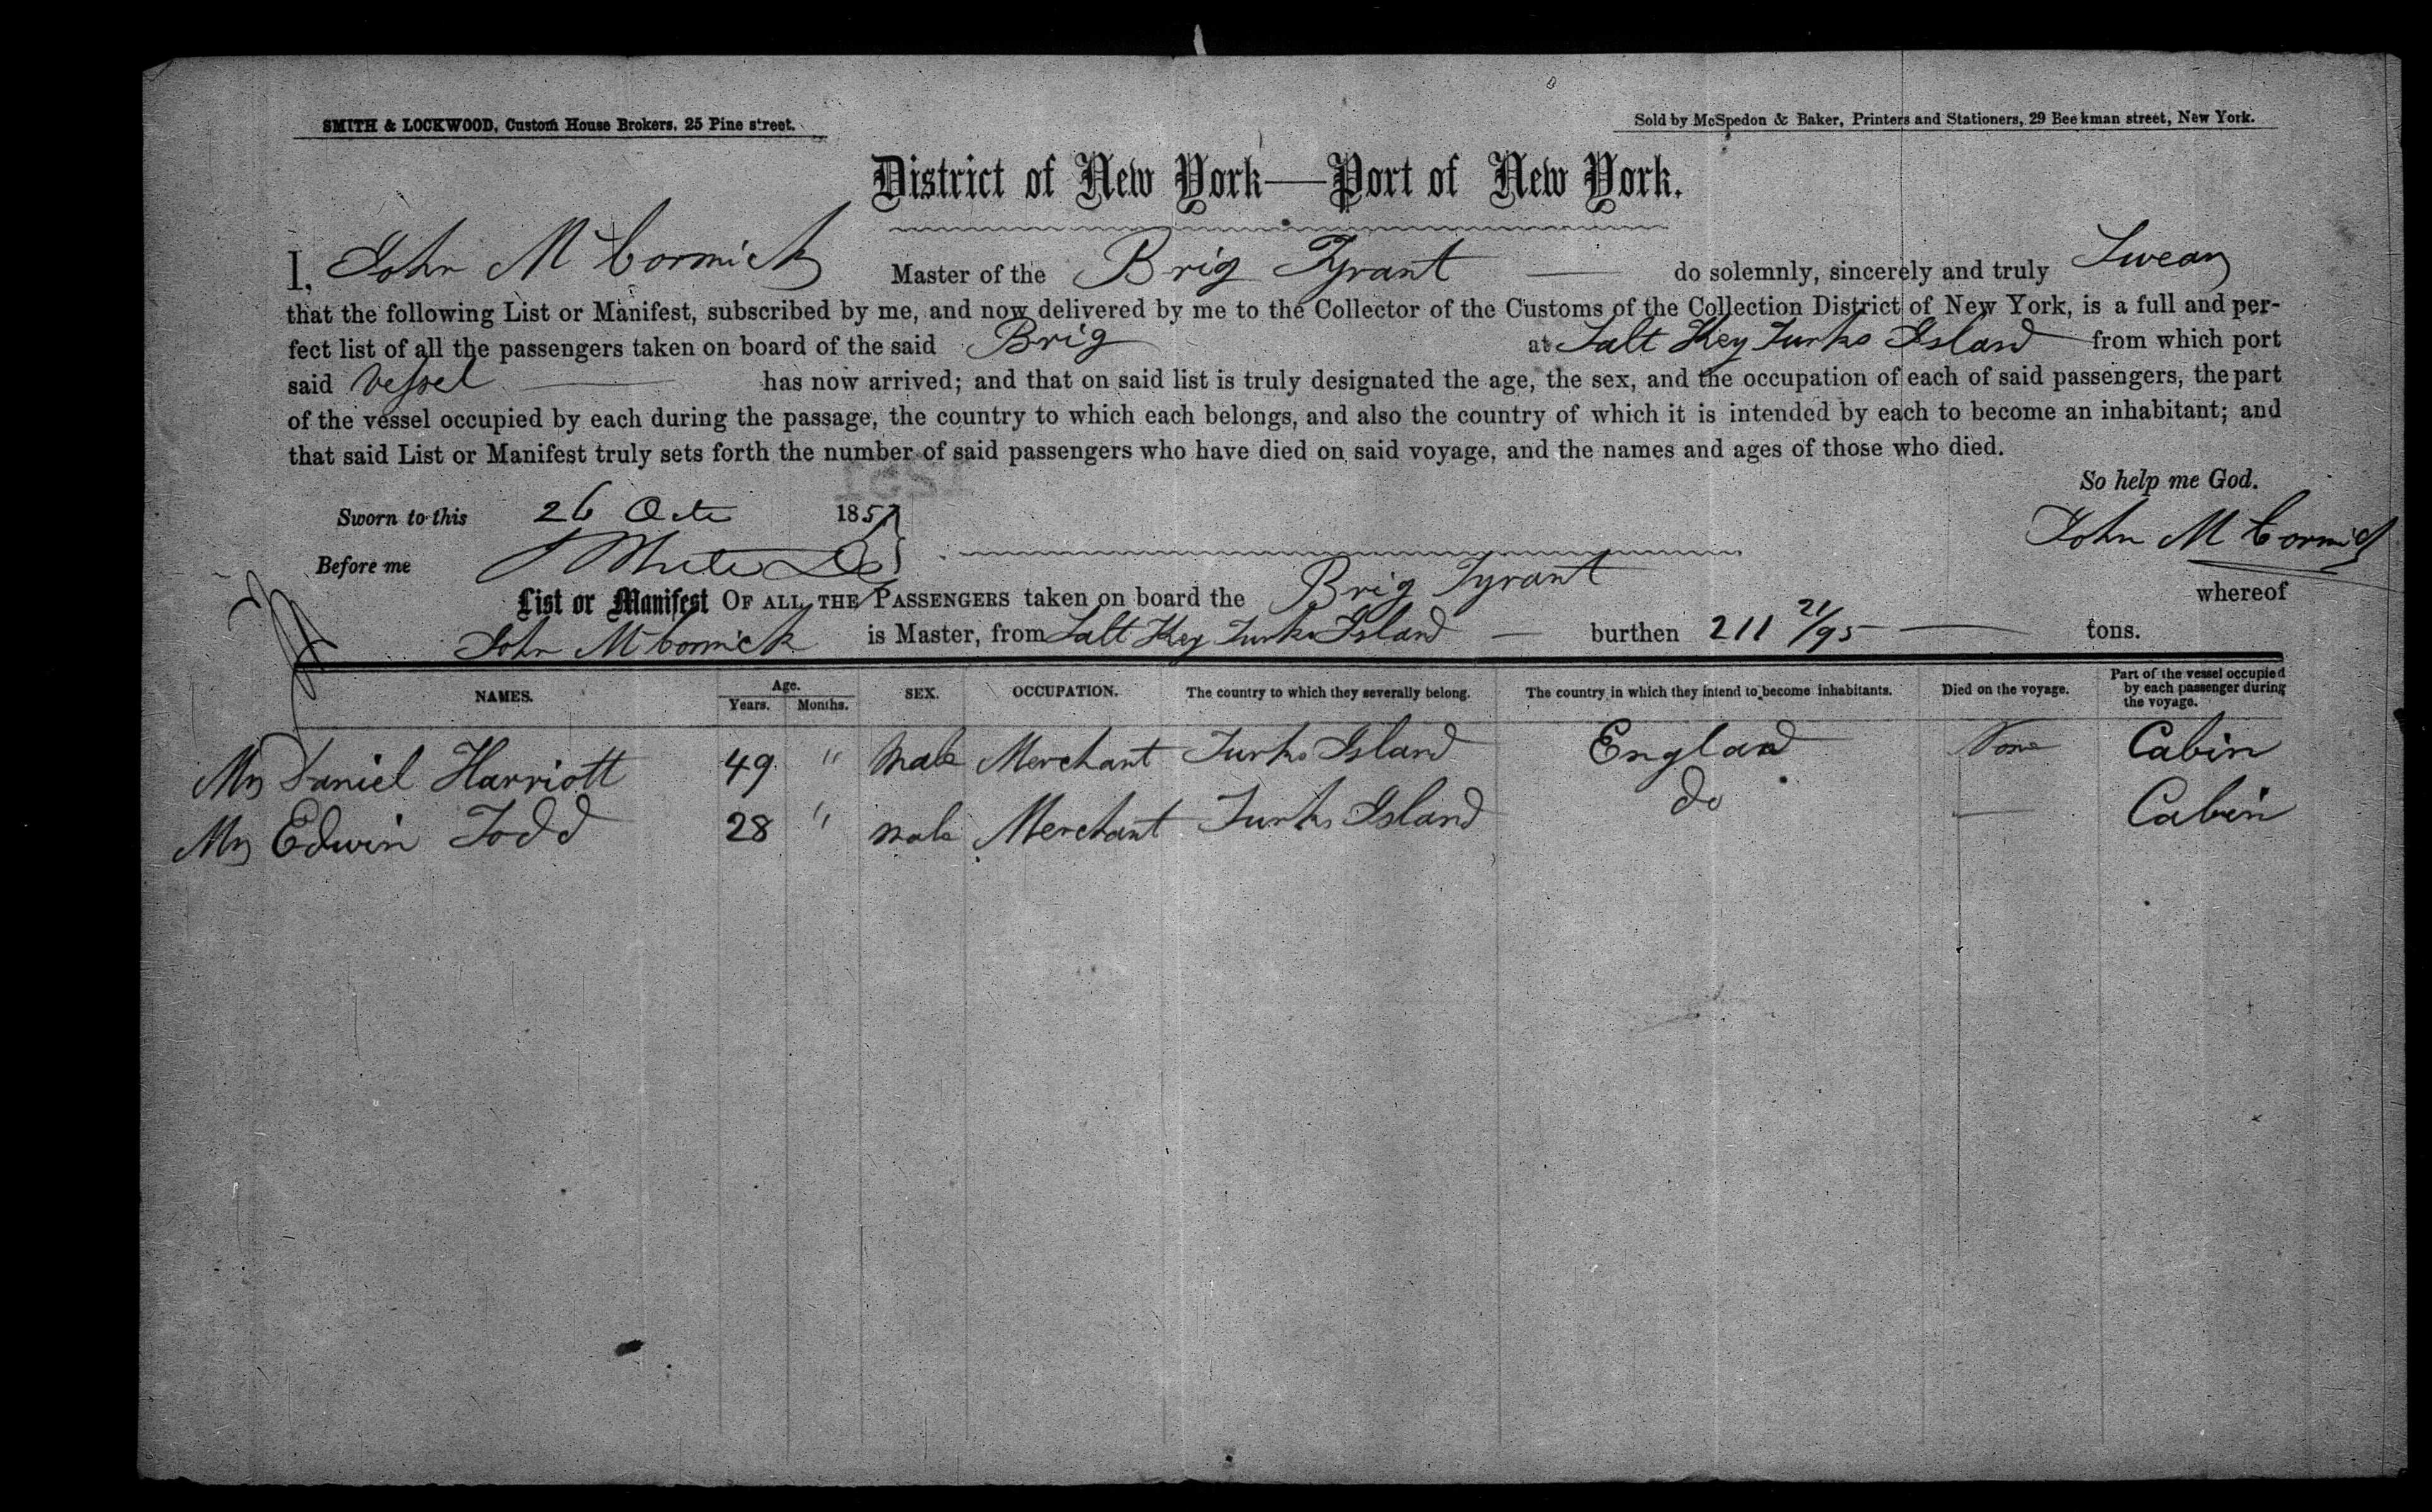 SMITH & LOCKWOOD, Custom House Brokers, 25 Pine street.
Sold by McSpedon & Baker, Printers and Stationers, 29 Beekman street, New York.
District of New York—Port of New York.
I, John McCormick Master of the Brig Tyrant do solemnly, sincerely and truly Swear
that the following List or Manifest, subscribed by me, and now delivered by me to the Collector of the Customs of the Collection District of New York, is a full and per-
fect list of all the passengers taken on board of the said Brig at Salt Key Turks Island from which port
said Vessel has now arrived; and that on said list is truly designated the age, the sex, and the occupation of each of said passengers, the part
of the vessel occupied by each during the passage, the country to which each belongs, and also the country of which it is intended by each to become an inhabitant; and
that said List or Manifest truly sets forth the number of said passengers who have died on said voyage, and the names and ages of those who died.
So help me God.
Sworn to this 26 Octr 1857
John McCormick
Before me
List or Manifest OF ALL THE PASSENGERS taken on board the Brig Tyrant whereof
John McCormick is Master, from Salt Key Turks Island — burthen 211 21/95 — tons.
NAMES. Age. Years. Months. SEX. OCCUPATION. The country to which they severally belong. The country in which they intend to become inhabitants. Died on the voyage. Part of the vessel occupied by each passenger during the voyage.
Mr Daniel Harriott 49 " Male Merchant Turks Island England None Cabin
Mr Edwin Todd 28 " Male Merchant Turks Island do — Cabin